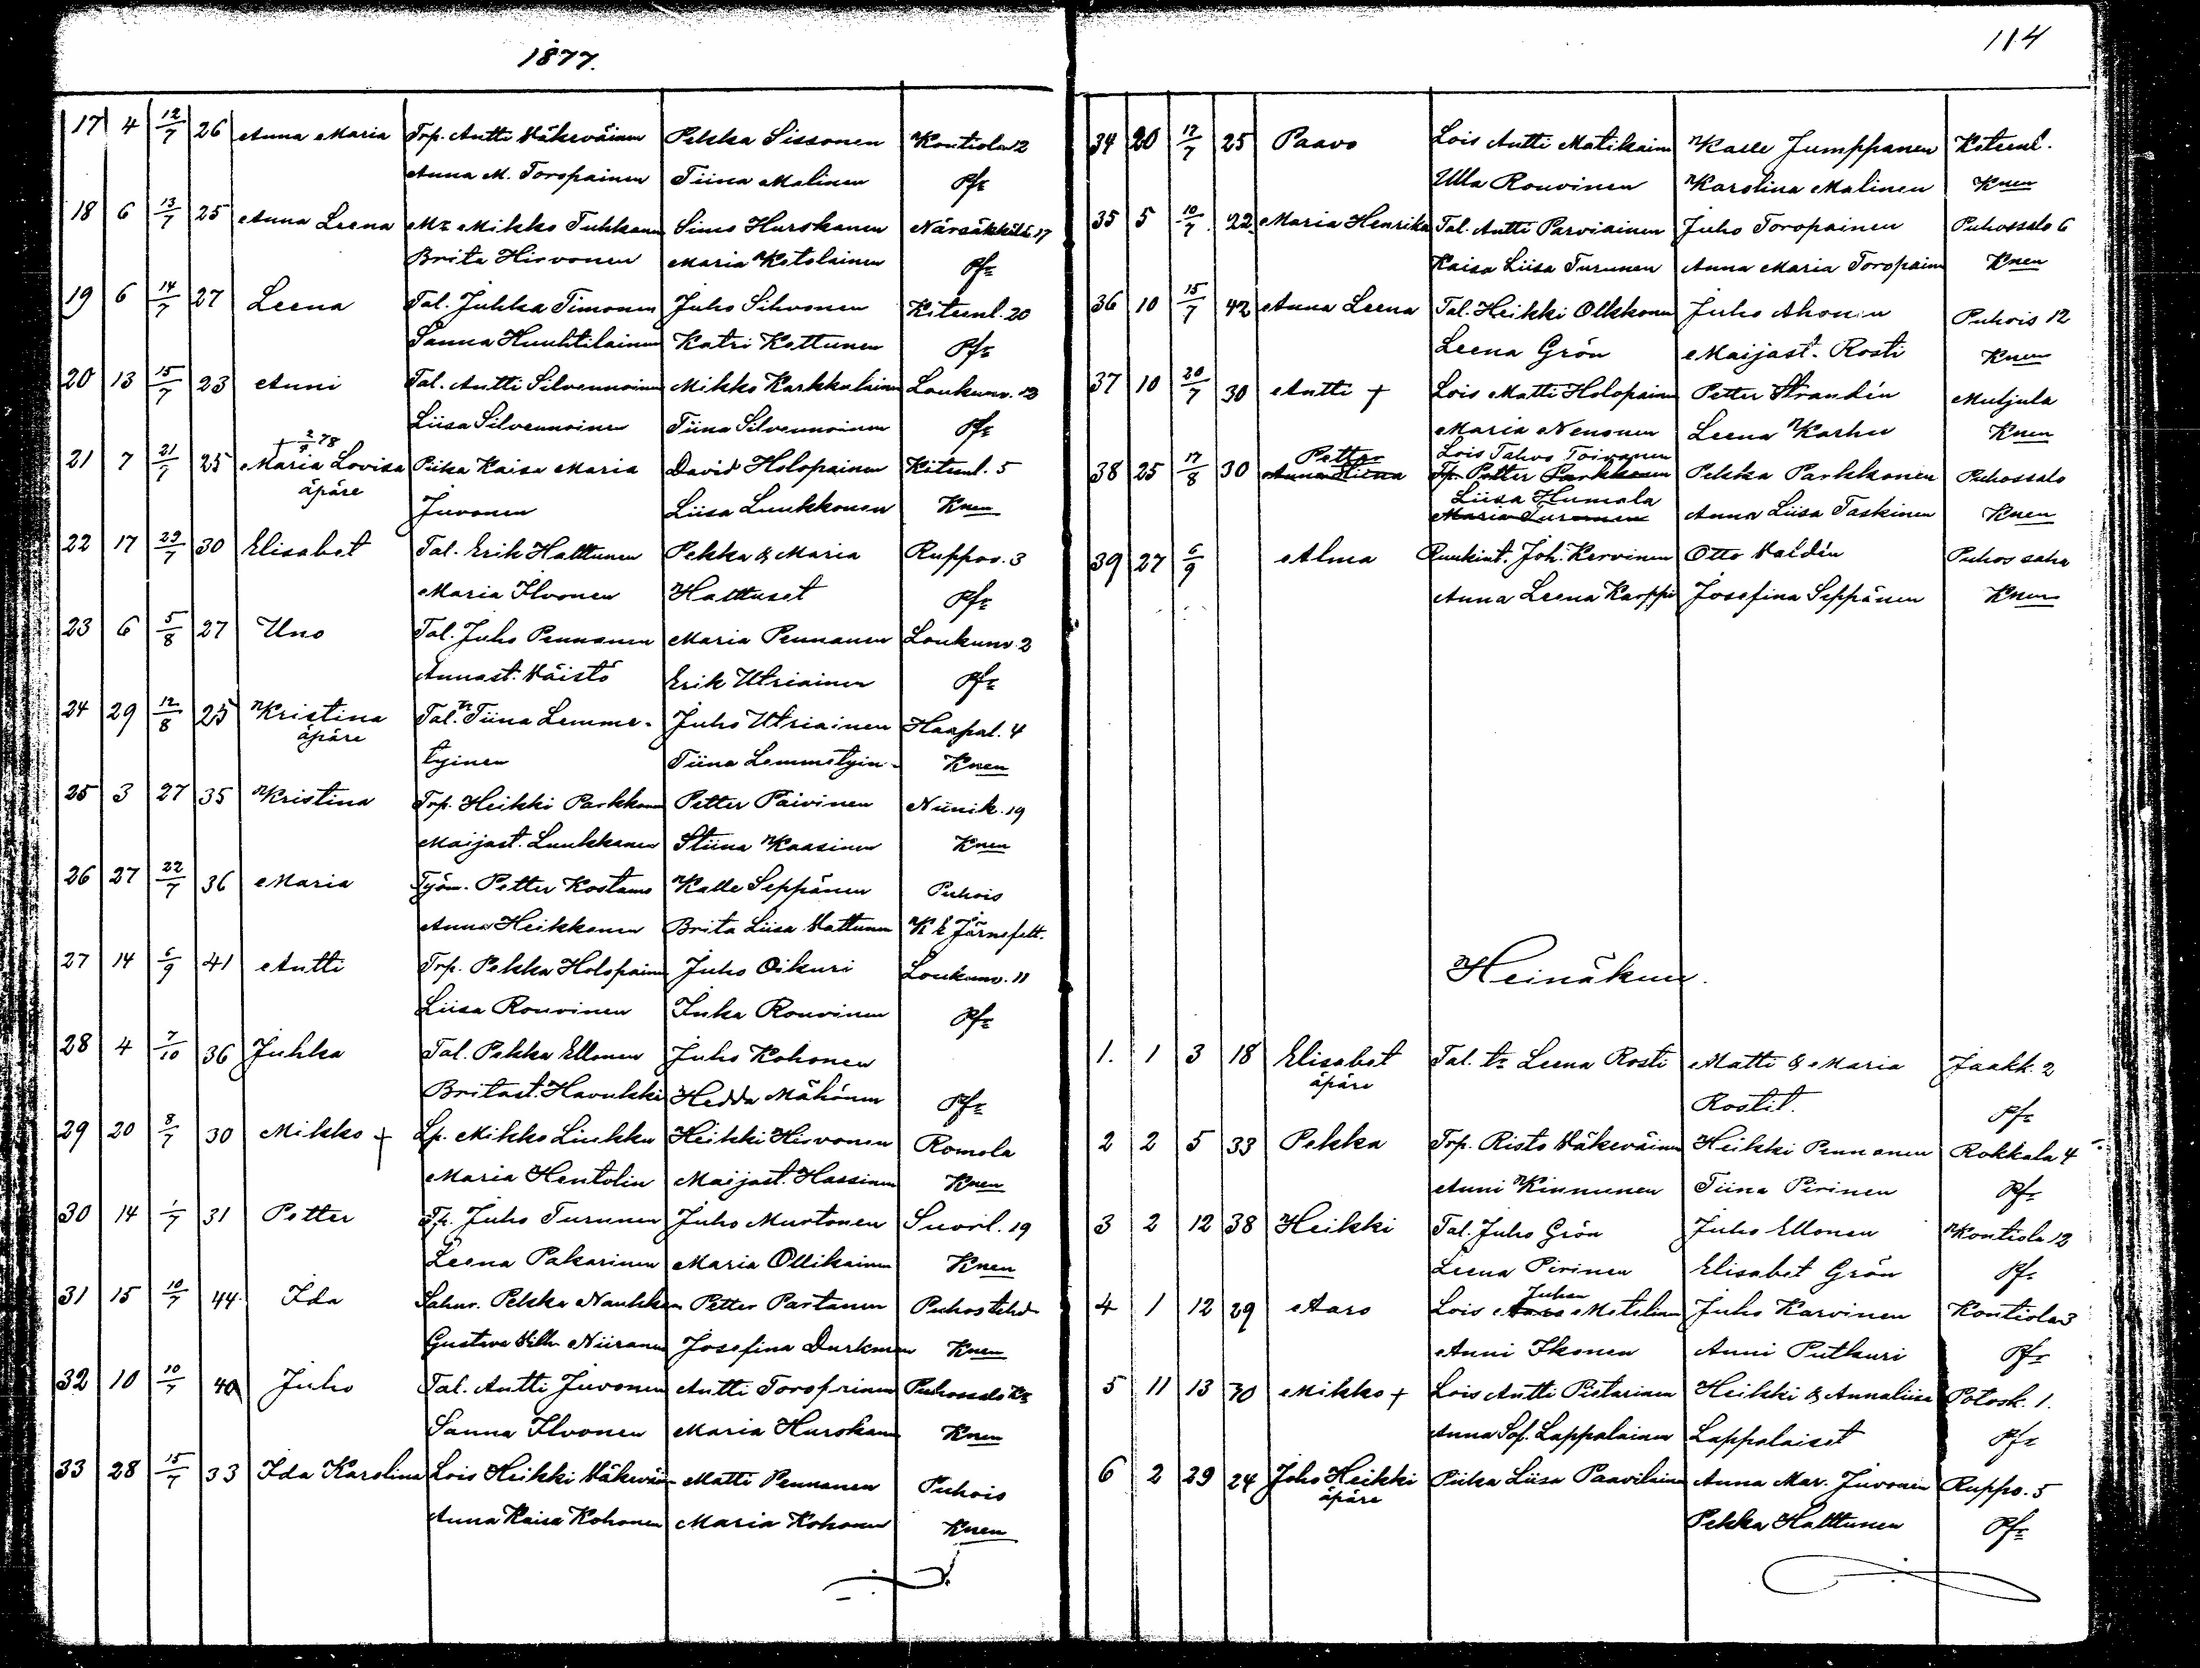 1877.
17 4 12/7 26 Anna Maria Trp. Antti Väkeväinen Pekka Sissonen Kontiola 2
Anna M. Toropainen Tiina Malinen Pfr
18 6 13/7 25 Anna Leena Mr Mikko Tuhkanen Simo Hurskanen Närsäkkälä 17
Brita Hirvonen Maria Ketolainen Pfr
19 6 14/7 27 Leena Tal. Juhka Timonen Juho Sihvonen Kiteenl. 20
Sanna Huuhtilainen Katri Kettunen Pfr
20 13 15/7 23 Anni Tal. Antti Silvennoinen Mikko Karkkulainen Loukunv. 13
Liisa Silvennoinen Tiina Silvennoinen Pfr
+ 2/9 78
21 7 21/7 25 Maria Lovisa Piika Kaisa Maria David Holopainen Kiteenl. 5
äpäre Juvonen Liisa Luukkonen Knen
22 17 29/7 30 Elisabet Tal. Erik Halttunen Pekka & Maria Ruppov. 3
Maria Ilvonen Halttuset Pfr
23 6 5/8 27 Uno Tal. Juho Pennanen Maria Pennanen Loukunv. 2
Annast. Väistö Erik Utriainen Pfr
24 29 12/8 25 Kristina Tal. Tiina Lemme- Juho Utriainen Haapal. 4
äpäre tyinen Tiina Lemmetyin- Knen
25 3 27 35 Kristina Trp. Heikki Parkkonen Petter Päivinen Niinik. 19
Maijast. Luukkanen Stiina Kaasinen Knen
26 27 22/7 36 Maria Työm. Petter Kostamo Kalle Seppänen Puhois
Anna Heikkonen Brita Liisa Vattunen K E Järnefelt.
27 14 6/9 41 Antti Trp. Pekka Holopainen Juho Oikuri Loukunv. 11
Liisa Rouvinen Inka Rouvinen Pfr
28 4 7/10 36 Juhka Tal. Pekka Ellonen Juho Kohonen
Britast. Havukki Hedda Mähönen Pfr
29 20 8/7 30 Mikko + Lp. Mikko Liukku Heikki Hirvonen Romola
Maria Hentolin Maijast. Hassinen Knen
30 14 1/7 31 Petter Tp. Juho Turunen Juho Murtonen Suorl. 19
Leena Pakarinen Maria Ollikainen Knen
31 15 10/7 44 Ida Sahur. Pekka Naukkan Petter Partanen Puhos tehd
Gustava Vilh. Niiranen Josefina Durkman Knen
32 10 10/7 40 Juho Tal. Antti Juvonen Antti Toroprinen Puhossalo
Sanna Ilvonen Maria Hurskan Knen
33 28 15/7 33 Ida Karolina Lois Heikki Väkeväin Matti Pennanen Puhois
Anna Kaisa Kohonen Maria Kohonen Knen
114
34 20 12/7 25 Paavo Lois Antti Matikainen Kalle Jumppanen Kiteenl.
Ulla Rouvinen Karolina Malinen Knen
35 5 10/7 22 Maria Henrika Tal. Antti Parviainen Juho Toropainen Puhossalo 6
Kaisa Liisa Turunen Anna Maria Toropain Knen
36 10 15/7 42 Anna Leena Tal. Heikki Olkkonen Juho Ahonen Puhois 12
Leena Grön Maijast. Rosti Knen
37 10 20/7 30 Antti + Lois Matti Holopainen Petter Strandén Mutjula
Maria Nenonen Leena Karhu Knen
Petter Lois Tahvo Toivanen
38 25 17/8 30 Anna Hiena Tp. Petter Parkkonen Pekka Parkkonen Puhossalo
Liisa Humala
Maria Turunen Anna Liisa Taskinen Knen
39 27 6/9 Alma Ruukint. Joh. Kervinen Otto Valdén Puhos saha
Anna Leena Karppi Josefina Seppänen Knen
Heinäkuu.
1. 1 3 18 Elisabet Tal. tr Leena Rosti Matti & Maria Jaakk. 2
äpäre Rostit. Pfr
2 2 5 33 Pekka Trp. Risto Väkeväinen Heikki Pennanen Rokkala 4
Anni Kinnunen Tiina Pirinen Pfr
3 2 12 38 Heikki Tal. Juho Grön Juho Ellonen Kontiola 12
Leena Pirinen Elisabet Grön Pfr
Juhan
4 1 12 29 Aaro Lois Aaro Metelinen Juho Karvinen Kontiola 3
Anni Ikonen Anni Putkuri Pfr
5 11 13 30 Mikko + Lois Antti Pietarinen Heikki & Annaliisa Potosk. 1.
Anna Sof. Lappalainen Lappalaiset Pfr
6 2 29 24 Joho Heikki Piika Liisa Paavilainen Anna Mar. Juvonen Ruppo. 5
äpäre Pekka Halttunen Pfr